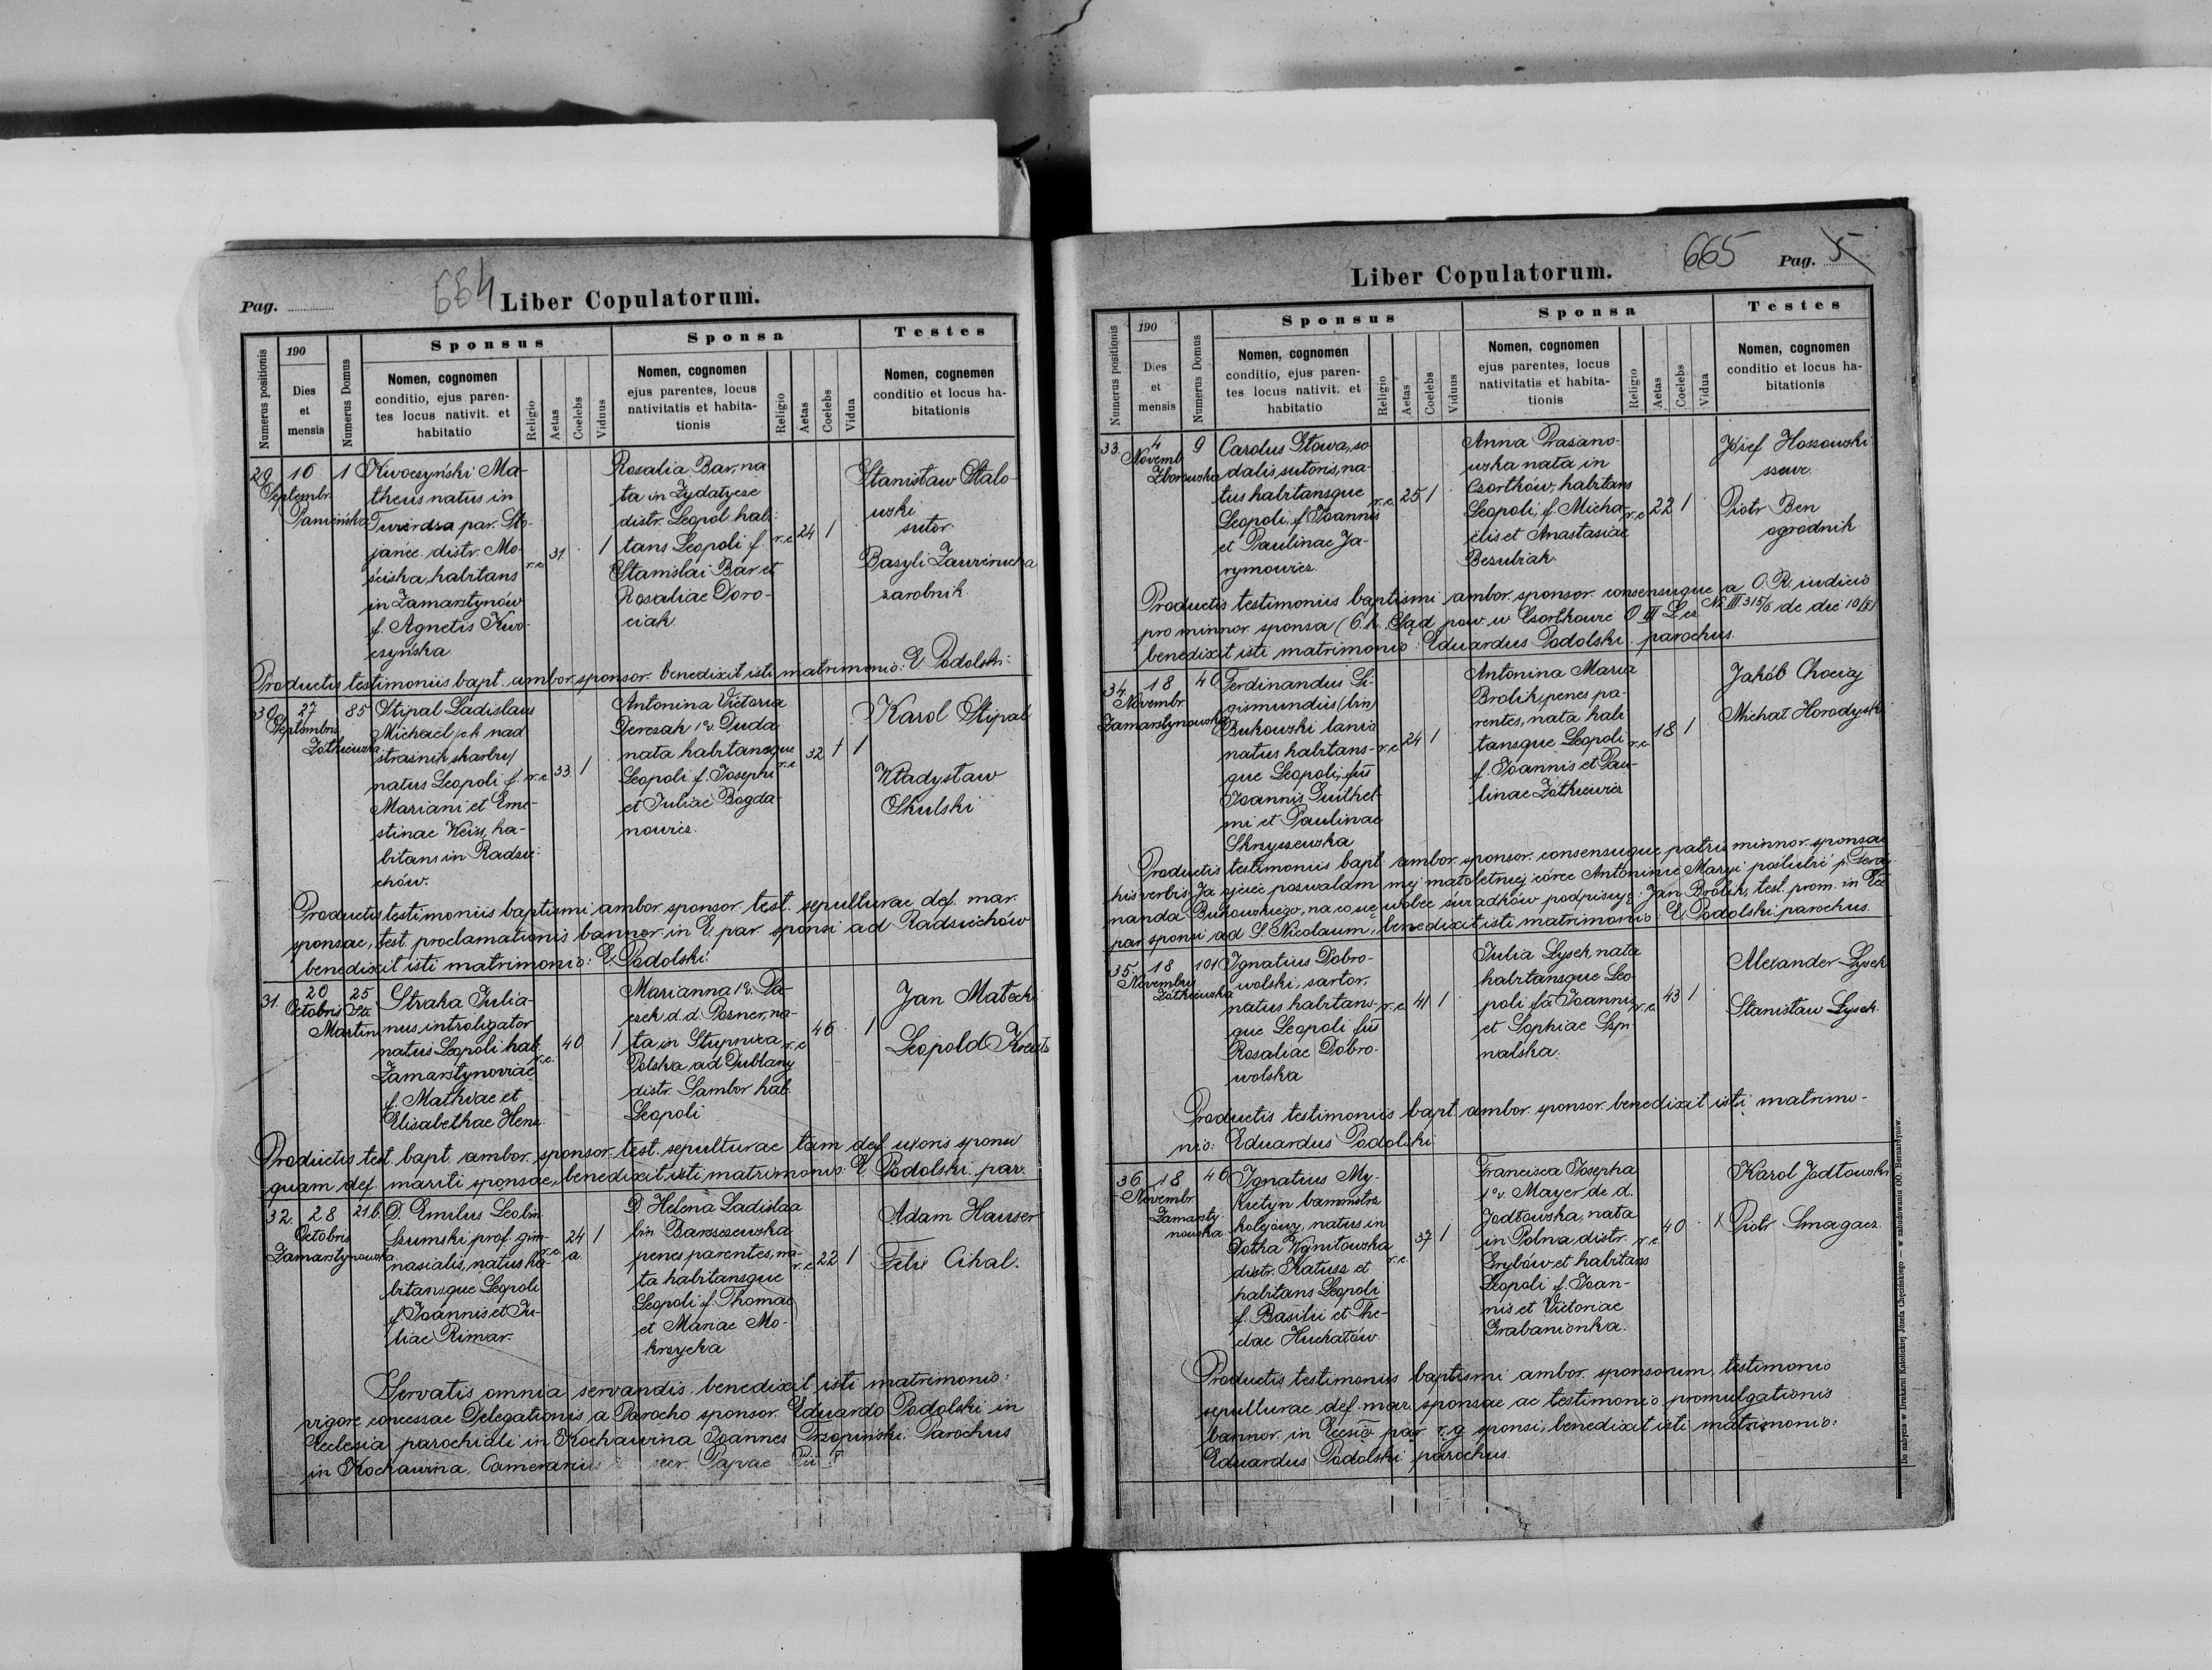 Pag.
664
Liber Copulatorum.
Numerus positionis
190
Dies
et
mensis
Numerus Domus
Sponsus
Nomen, cognomen
conditio, ejus paren-
tes locus nativit. et
habitatio
Religio
Aetas
Coelebs
Viduus
Sponsa
Nomen, cognomen
ejus parentes, locus
nativitatis et habita-
tionis
Religio
Aetas
Coelebs
Vidua
Testes
Nomen, cognemen
conditio et locus ha-
bitationis
29. 10 1
Septembr.
Kwoczyński Ma-
theus natus in
Twierdza par. Sto-
jańce distr. Mo-
ściska, habitans
in Zamarstynów
f. Agnetis Kwo-
czyńska
r.c. 31. 1
Rosalia Bar, na
ta in Żydatycze
distr. Leopol. habi-
tans Leopoli f.
Stanislai Bar et
Rosaliae Doro-
ciak
r.c. 24 1
Stanisław Stalo-
wski
sutor
Basyli
zarobnik.
Productis testimoniis bapt. ambor. sponsor. benedixit isti matrimonio: E. Podolski.
30. 27 85
Septembris
Żółkiewska
Stipal Ladislaus
Michael (c.k. nad
strażnik skarbu)
natus Leopoli f.
Mariani et Erne-
stinae Weiss, ha-
bitans in Radzie-
chów.
r.c. 33. 1
Antonina Victoria
Derezak 1v. Duda
nata habitansque
Leopoli f. Josephi
et Juliae Bogda-
nowicz.
r.c. 32 1
Karol Stipal
Władysław
Skulski
Productis testimoniis baptismi ambor. sponsor. test. sepulturae def. mar.
sponsae, test. proclamationis bannor. in E. par. sponsi ad Radziechów
benedixit isti matrimonio: E. Podolski.
31. 20 25
Octobris Sti
Martini
Straka Julia-
nus introligator
natus Leopoli hab.
Zamarstynoviae
f. Mathiae et
Elisabethae Henz.
r.c. 40 1
Marianna 1v. Pa-
czek d.d. Pozner, na-
ta in Stupnica
Polska ad Dublany
distr. Sambor hab.
Leopoli
r.c. 46 1
Jan Małecki
Leopold
Productis test. bapt. ambor. sponsor. test. sepulturae tam def. uxoris sponsi
quam def. mariti sponsae, benedixit isti matrimonio: E. Podolski. par.
32. 28 21b.
Octobris
Zamarstynowska
D. Emilus Leo bin
Szumski prof. gim-
nasialis, natus ha-
bitansque Leopoli
f. Joannis et Ju-
liae Rimar.
r.c. 24 1
a
D. Helena Ladislaa
bin Barszczewska
penes parentes, na-
ta habitansque
Leopoli f. Thomae
et Mariae Mo-
krzycka
r.c. 22 1
Adam Hauser
Felix Cihal.
Servatis omnia servandis benedixit isti matrimonio:
vigore concessae Delegationis a Parocho sponsor. Eduardo Podolski in
Ecclesia parochiali in Kochawina Joannes Trzopiński. Parochus
in Kochawina, Camerarius secr. Papae Pii X
Liber Copulatorum.
665
Pag. 5
Numerus positionis
190
Dies
et
mensis
Numerus Domus
Sponsus
Nomen, cognomen
conditio, ejus paren-
tes locus nativit. et
habitatio
Religio
Aetas
Coelebs
Viduus
Sponsa
Nomen, cognomen
ejus parentes, locus
nativitatis et habita-
tionis
Religio
Aetas
Coelebs
Vidua
Testes
Nomen, cognomen
conditio et locus ha-
bitationis
33. 4 9
Novemb.
Zborowska
Carolus Stowa, so
dalis sutoris, na-
tus habitansque
Leopoli f. Joannis
et Paulinae Ja-
rymowicz.
r.c. 25 1
Anna Prasano-
wska nata in
Czortków, habitans
Leopoli, f. Micha-
elis et Anastasiae
Bezubiak.
r.c. 22 1
Józef Hossowski
szewc.
Piotr Ben
ogrodnik
Productis testimoniis baptismi ambor. sponsor. consensuque a O. R. iudicio
pro minnor. sponsa (C.k. Sąd pow. w Czortkowie O III L cz Nc III 315/5 de die 10/XI)
benedixit isti matrimonio: Eduardus Podolski. parochus.
34. 18 40
Novembr.
Zamarstynowska
Ferdinandus Si-
gismundus (bin)
Bukowski lanio
natus habitans-
que Leopoli, fils
Joannis Guilhel-
mi et Paulinae
Skrzyszewska
r.c. 24 1
Antonina Maria
Brolik, penes pa-
rentes, nata habi
tansque Leopoli
f. Joannis et Pau-
linae Żółkiewicz
r.c. 18 1
Jakób Chociaj
Michał Horodyski
Productis testimoniis bapt. ambor. sponsor. consensuque patris minnor. sponsae
his verbis: Ja ojciec pozwalam mej małoletniej córce Antoninie Maryi poślubić p. Ferdy-
nanda Bukowskiego, na co się wobec świadków podpisuję: Jan Brolik, test. prom. in Ecc
par sponsi ad S. Nicolaum, benedixit isti matrimonio: E. Podolski. parochus.
35. 18 101
Novembris
Żółkiewska
Ignatius Dobro-
wolski, sartor,
natus habitans-
que Leopoli fils
Rosaliae Dobro-
wolska
r.c. 41 1
Julia Łysek, nata
habitansque Leo-
poli fa Joannis
et Sophiae Szpi-
nalska.
r.c. 43 1
Alexander Łysek
Stanisław Łysek.
Productis testimoniis bapt. ambor. sponsor. benedixit isti matrimo-
nio: Eduardus Podolski
36 18 46
Novembr.
Zamarsty-
nowska.
Ignatius My-
kietyn banmistrz
kolejowy, natus in
Dołha Wojniłowska
distr. Kałusz et
habitans Leopoli
f. Basilii et The-
clae Huckałów.
r.c. 37 1
Francisca Josepha
1v. Mayer de d.
Jodłowska, nata
in Polna distr.
Grybów et habitans
Leopoli f. Joan-
nis et Victoriae
Grabanionka.
r.c. 40 1
Karol Jodłowski
Piotr Smagacz.
Productis testimoniis baptismi ambor. sponsorum, testimonio
sepulturae def. mar. sponsae ac testimonio promulgationis
bannor. in Ecclsia par. r.g. sponsi, benedixit isti matrimonio:
Eduardus Podolski. parochus.
Do nabycia w Drukarni Katolickiej Józefa Chęcińskiego — w zabudowaniu OO. Bernardynów.